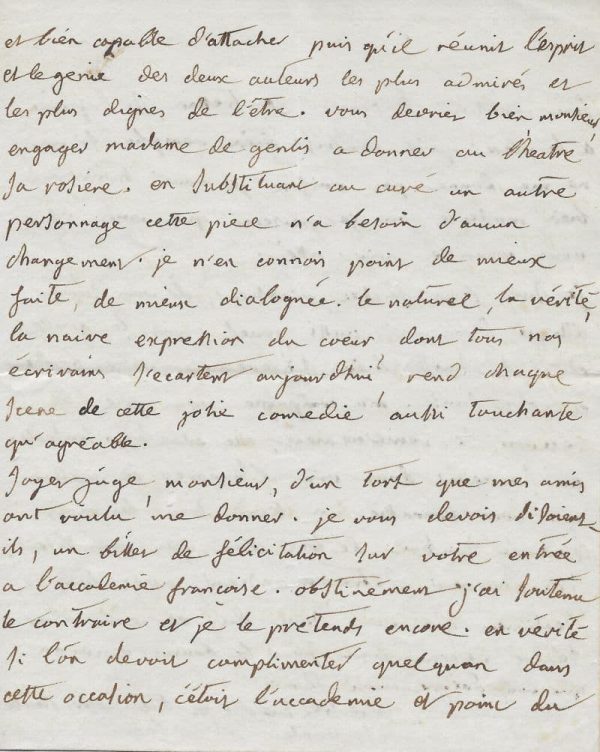 et bien capable d'attacher puis qu'il réunit l'esprit
et le genie des deux auteurs les plus admirés et
les plus dignes de l'être. vous devriez bien monsieur,
engager madame de genlis a donner au théatre
sa rosiere. en substituant au curé un autre
personnage cette piece n'a besoin d'aucun
changement. je n'en connois point de mieux
faite, de mieux dialoguée. le naturel, la vérité,
la naive expression du coeur dont tous nos
écrivains s'ecartent aujourd'hui, rend chaque
scene de cette jolie comedie aussi touchante
qu'agréable.
soyez juge, monsieur, d'un tort que mes amis
ont voulu me donner. je vous devois disoient-
ils, un billet de félicitation sur votre entrée
a l'accademie françoise. obstinément j'ai soutenu
le contraire et je le prétends encore. en vérité
si l'on devoit complimenter quelquun dans
cette occasion, c'étoit l'accademie et point du